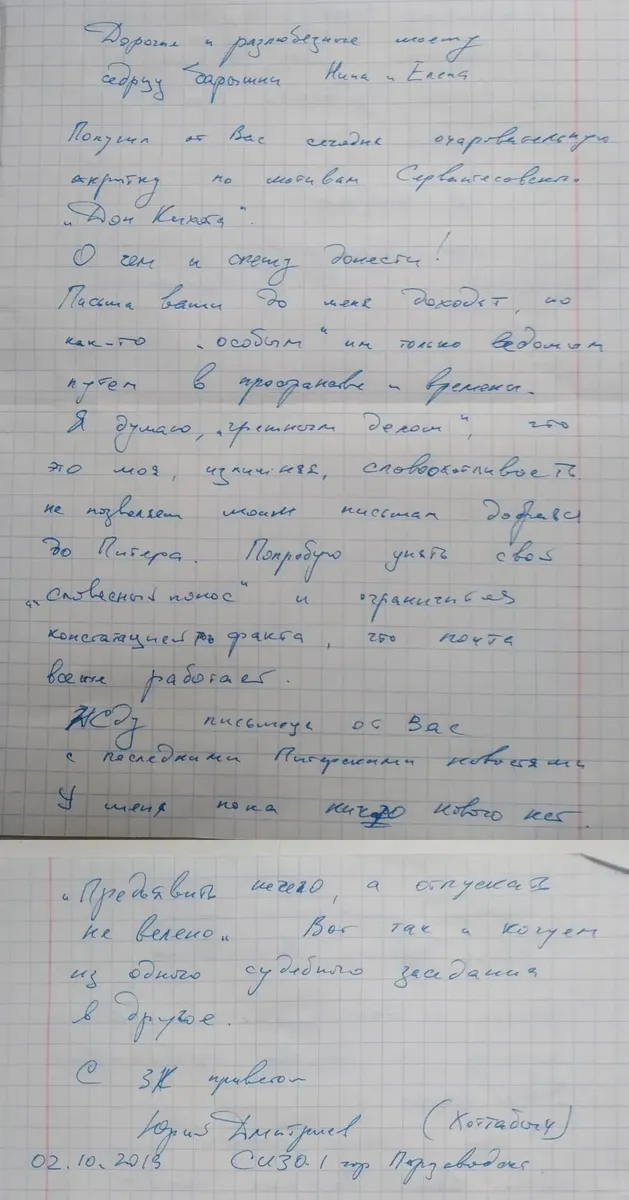 Дорогие и разлюбезные моему
сердцу барышни Нина и Елена
Получил от Вас сегодня очаровательную
открытку по мотивам Сервантесовского
„Дон Кихота".
О чем и спешу донести!
Письма ваши до меня доходят, но
как-то „особым" им только ведомым
путем в пространстве и времени.
Я думаю, „грешным делом", что
это моя, излишняя, словоохотливость
не позволяет моим письмам добраться
до Питера. Попробую унять свой
„словесный понос" и ограничиться
констатацией факта, что почта
все же работает.
Жду письмеца от Вас
с последними Питерскими новостями
У меня пока ничего нового нет.
„Предъявить нечего, а отпускать
не велено„ Вот так и кочуем
из одного судебного заседания
в другое.
С ЗК приветом
Юрий Дмитриев (Хоттабыч)
02.10.2019 СИЗО.1 гор Петрозаводска.